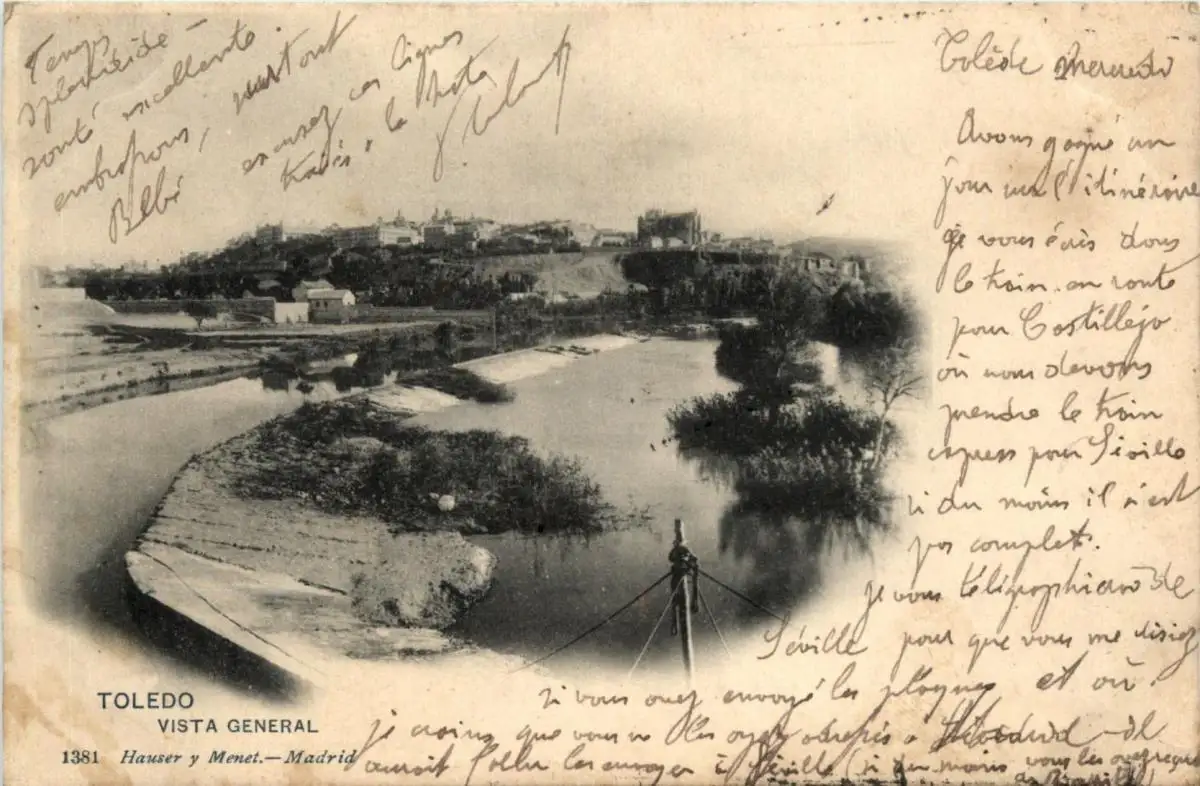 Tolède Mercredi
Avons gagné un
jour sur l'itinéraire
je vous écris dans
le train en route
pour Castilléjo
où nous devons
prendre le train
express pour Séville
si du moins il n'est
pas complet.
je vous télégraphierai de
Séville pour que vous me disiez
si vous avez envoyé les plaques et où.
je crains que vous ne les ayez à
les envoyer à Séville (si du moins vous les
Temps
splendide —
santé excellente.
embrassons, surtout
Bébé
excusez ces lignes
la photo
TOLEDO
VISTA GENERAL
1381 Hauser y Menet.—Madrid